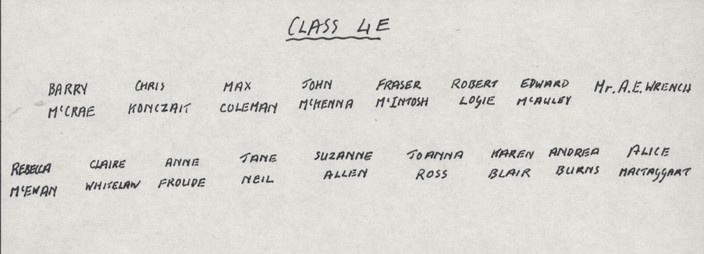 CLASS 4E
BARRY CHRIS MAX JOHN FRASER ROBERT EDWARD Mr. A. E. WRENCH
McCRAE KONCZAIT COLEMAN McKENNA McINTOSH LOGIE McAULEY
REBECCA CLAIRE ANNE JANE SUZANNE JOANNA KAREN ANDREA ALICE
McEWAN WHITELAW FROUDE NEIL ALLEN ROSS BLAIR BURNS MACTAGGART